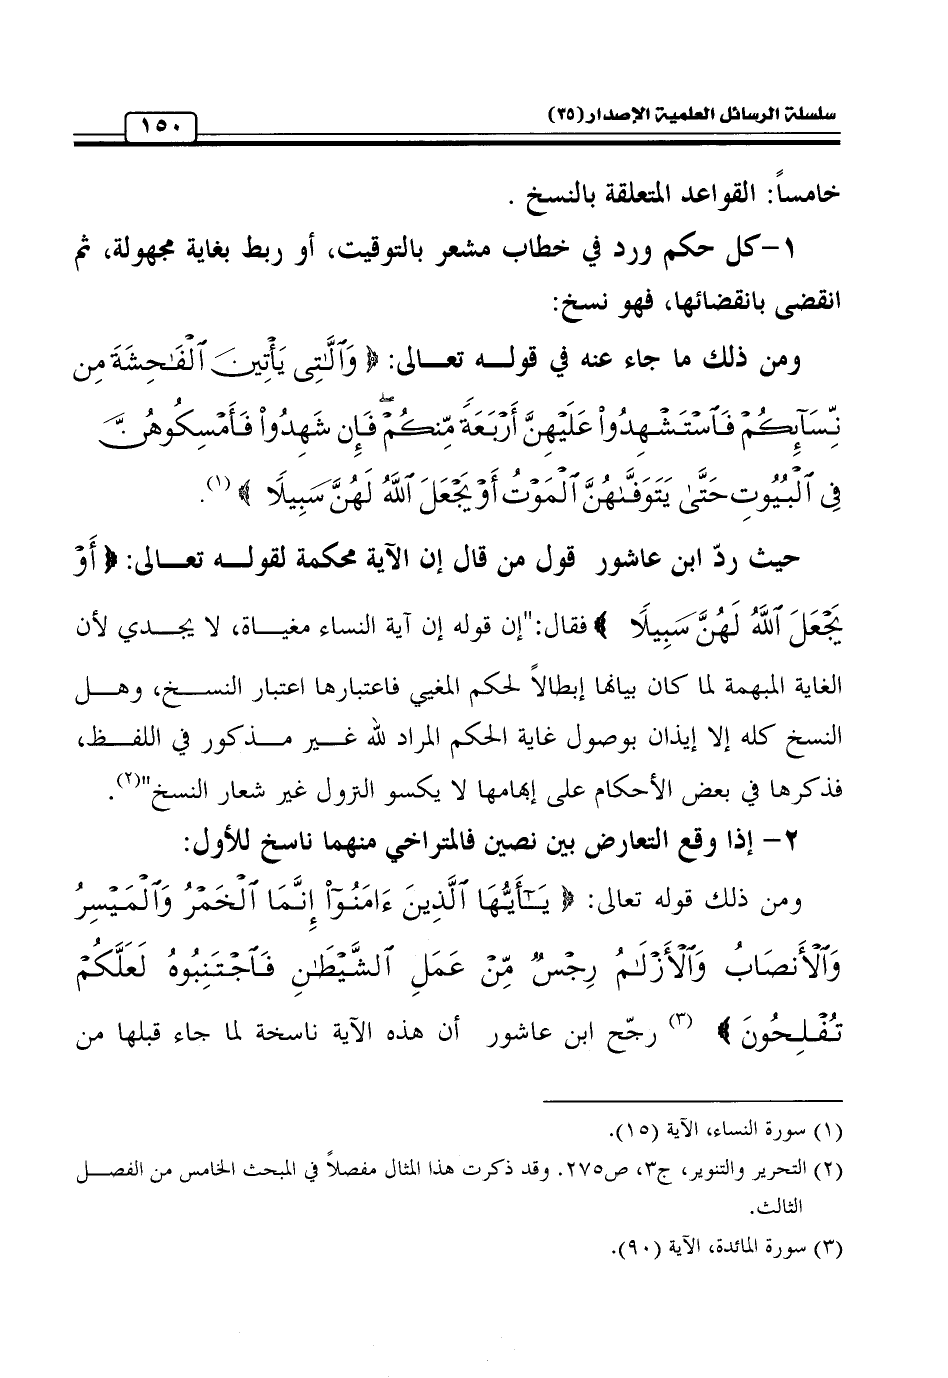 سلسلة الرسائل العلمية الإصدار (٣٥)
١٥٠
خامساً: القواعد المتعلقة بالنسخ .
١-كل حكم ورد في خطاب مشعر بالتوقيت، أو ربط بغاية مجهولة، ثم
انقضى بانقضائها، فهو نسخ:
ومن ذلك ما جاء عنه في قولـه تعـالى: ﴿ وَٱلَّٰتِى يَأْتِينَ ٱلْفَٰحِشَةَ مِن
نِّسَآئِكُمْ فَٱسْتَشْهِدُوا۟ عَلَيْهِنَّ أَرْبَعَةً مِّنكُمْ ۖ فَإِن شَهِدُوا۟ فَأَمْسِكُوهُنَّ
فِى ٱلْبُيُوتِ حَتَّىٰ يَتَوَفَّىٰهُنَّ ٱلْمَوْتُ أَوْ يَجْعَلَ ٱللَّهُ لَهُنَّ سَبِيلًا ﴾ (١).
حيث ردّ ابن عاشور قول من قال إن الآية محكمة لقولـه تعـالى: ﴿ أَوْ
يَجْعَلَ ٱللَّهُ لَهُنَّ سَبِيلًا ﴾ فقال:"إن قوله إن آية النساء مغيـاة، لا يجـدي لأن
الغاية المبهمة لما كان بيانها إبطالاً لحكم المغيي فاعتبارها اعتبار النسـخ، وهـل
النسخ كله إلا إيذان بوصول غاية الحكم المراد لله غـير مـذكور في اللفـظ،
فذكرها في بعض الأحكام على إبهامها لا يكسو النزول غير شعار النسخ"(٢).
٢- إذا وقع التعارض بين نصين فالمتراخي منهما ناسخ للأول:
ومن ذلك قوله تعالى: ﴿ يَٰٓأَيُّهَا ٱلَّذِينَ ءَامَنُوٓا۟ إِنَّمَا ٱلْخَمْرُ وَٱلْمَيْسِرُ
وَٱلْأَنصَابُ وَٱلْأَزْلَٰمُ رِجْسٌ مِّنْ عَمَلِ ٱلشَّيْطَٰنِ فَٱجْتَنِبُوهُ لَعَلَّكُمْ
تُفْلِحُونَ ﴾ (٣) رجّح ابن عاشور أن هذه الآية ناسخة لما جاء قبلها من
(١) سورة النساء، الآية (١٥).
(٢) التحرير والتنوير، ج٣، ص٢٧٥. وقد ذكرت هذا المثال مفصلاً في المبحث الخامس من الفصـل
الثالث.
(٣) سورة المائدة، الآية (٩٠).